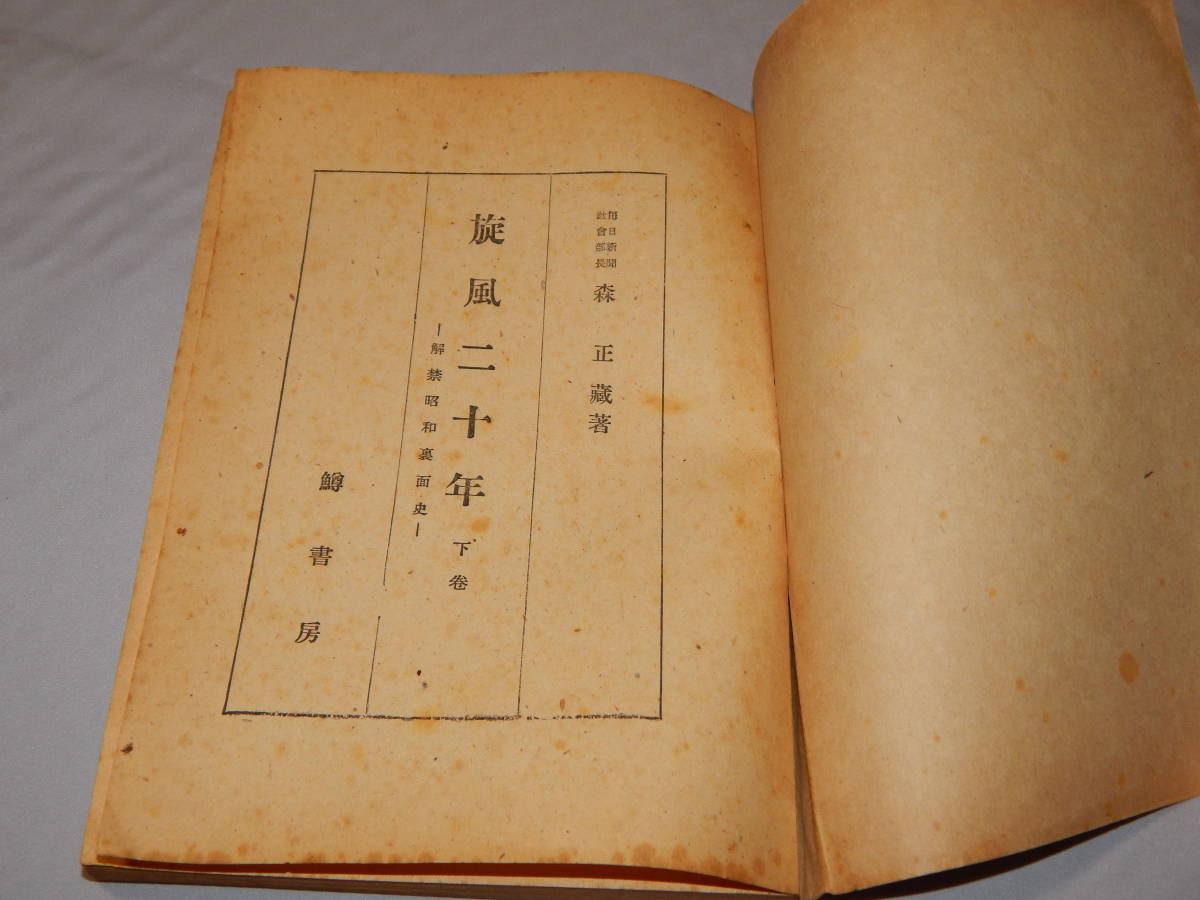 毎日新聞
社會部長
森正藏著
旋風二十年 下卷
―解禁昭和裏面史―
鱒書房